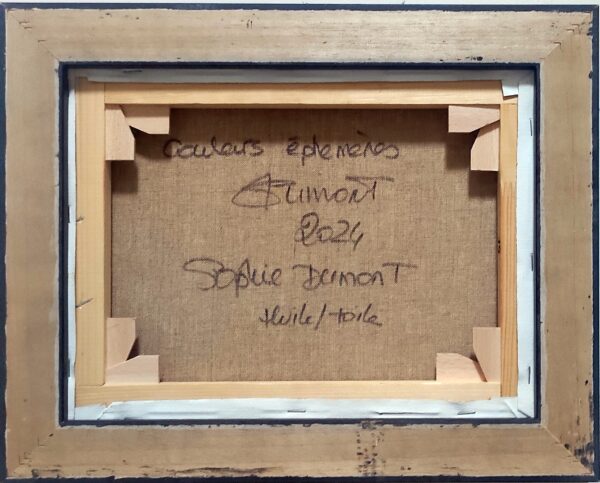 Couleurs éphemères
SDUMONT
2024
Sophie DUMONT
Huile/toile